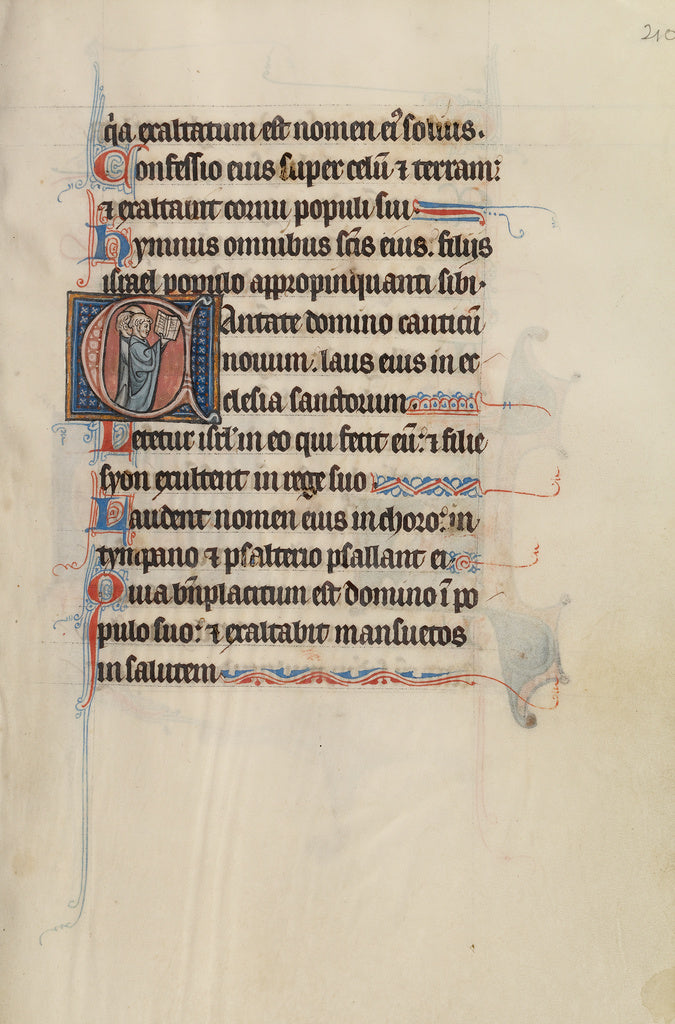 210
q̓a exaltatum est nomen ei᾿ solius.
Confessio eius super celū ⁊ terram:
⁊ exaltauit cornu populi sui
hymnus omnibus scīs eius. filijs
israel populo appropinquanti sibi.
CAntate domino canticū
nouum. laus eius in ec
clesia sanctorum.
Letetur isrl̓ in eo qui fecit eū: ⁊ filie
syon exultent in rege suo
Laudent nomen eius in choro: in
tympano ⁊ psalterio psallant ei
Quia bn̄placitum est domino ī po
pulo suo: ⁊ exaltabit mansuetos
in salutem